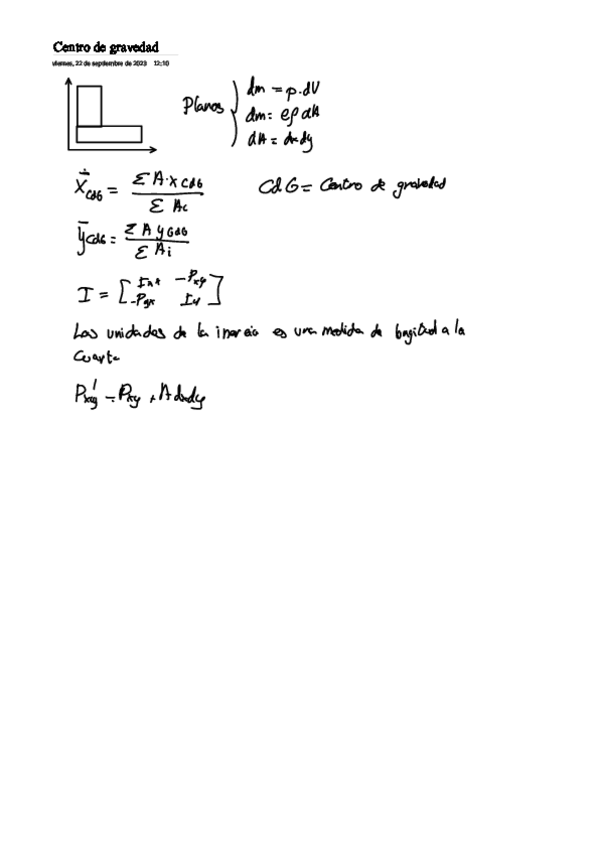 Centro de gravedad
viernes, 22 de septiembre de 2023 12:10
Planos { dm = ρ·dV
dm = eρ dA
dA = dxdy
X̄CdG = Σ A·xCdG / Σ Ai
CdG = Centro de gravedad
ȳCdG = Σ A yCdG / Σ Ai
I = [ Ixx -Pxy
-Pyx Iy ]
Las unidades de la inercia es una medida de longitud a la
cuarta
Pxy' = Pxy + A dxdy